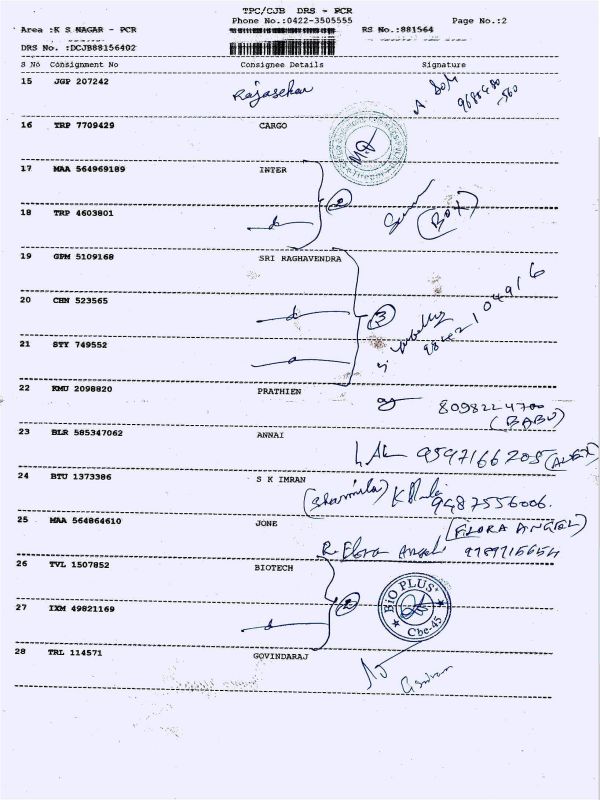 TPC/CJB DRS - PCR
Phone No.:0422-3505555 Page No.:2
Area :K S NAGAR - PCR RS No.:881564
DRS No. :DCJB88156402
S No Consignment No Consignee Details Signature
15 JGP 207242 Rajasekar
16 TRP 7709429 CARGO
17 MAA 564969189 INTER
18 TRP 4603801 (BOX)
19 GPM 5109168 SRI RAGHAVENDRA
20 CHN 523565 3
21 STY 749552
22 KMU 2098820 PRATHIEN
8098224700
(BABU)
23 BLR 585347062 ANNAI
9597166205 (ALEX)
24 BTU 1373386 S K IMRAN
(Sharmila) 9487556006.
25 MAA 564864610 JONE (FLORA ANGEL)
R. Flora Angel
26 TVL 1507852 BIOTECH
BIO PLUS
27 IXM 49821169 2
Cbe-45
28 TRL 114571 GOVINDARAJ